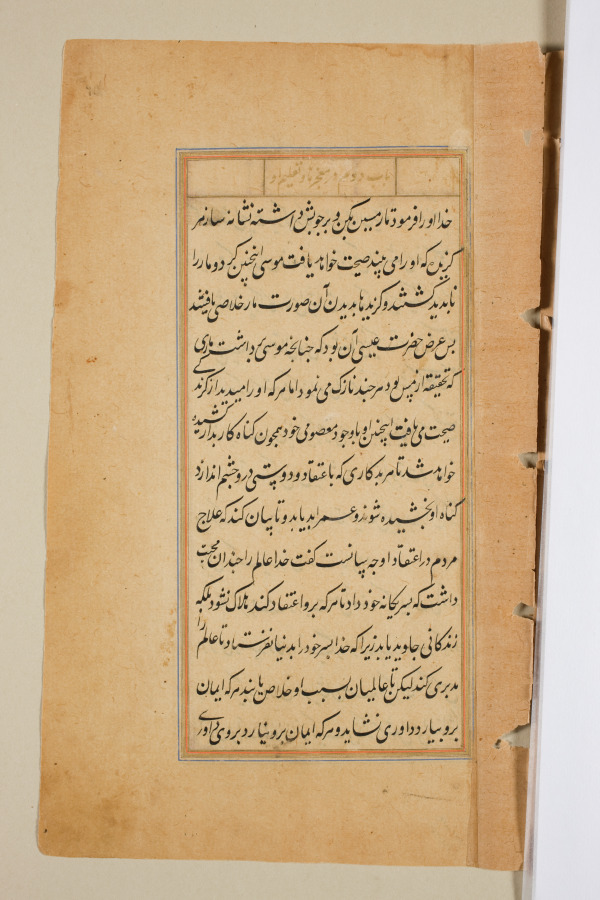 باب دوم در معجزها و تعلیم او
خدا او را فرمود تا مار مسین بکن و بر چوبش داشته نشانه ساز هر
گزیده که او را می بیند صحت خواهد یافت موسی اینچنین کرد و مار را
نابدید کشتند و گزید یا بدیدن آن صورت مار خلاصی یافتند
پس غرض حضرت عیسی آن بود که چنانچه موسی برداشت ماری
که بحقیقه از مس بود هر چند نازک می نمود اما هر که او را می دید از گزندکی
صحت می یافت اینچنین او با وجود معصومی خود همچون کناه کار بدار کشیده
خواهد شد تا هر بدکاری که باعتقاد و دوستی درو چشم اندازد
کناه او بخشیده شود و عمر ابد یابد و تا بیان کند که علاج
مردم در اعتقاد او چه سبب است گفت خدا عالم را چندان محب
داشت که پسر یکانه خود داد تا هر که برو اعتقاد کند هلاک نشود بلکه
زندکانی جاوید یابد زیرا که خدا پسر خود را بدنیا نفرستاد تا عالم را
بدبری کند لیکن تا عالمیان بسبب او خلاص یابند هر که ایمان
برو بیارد داوری نشاید و هر که ایمان برو نیارد بروی داوری